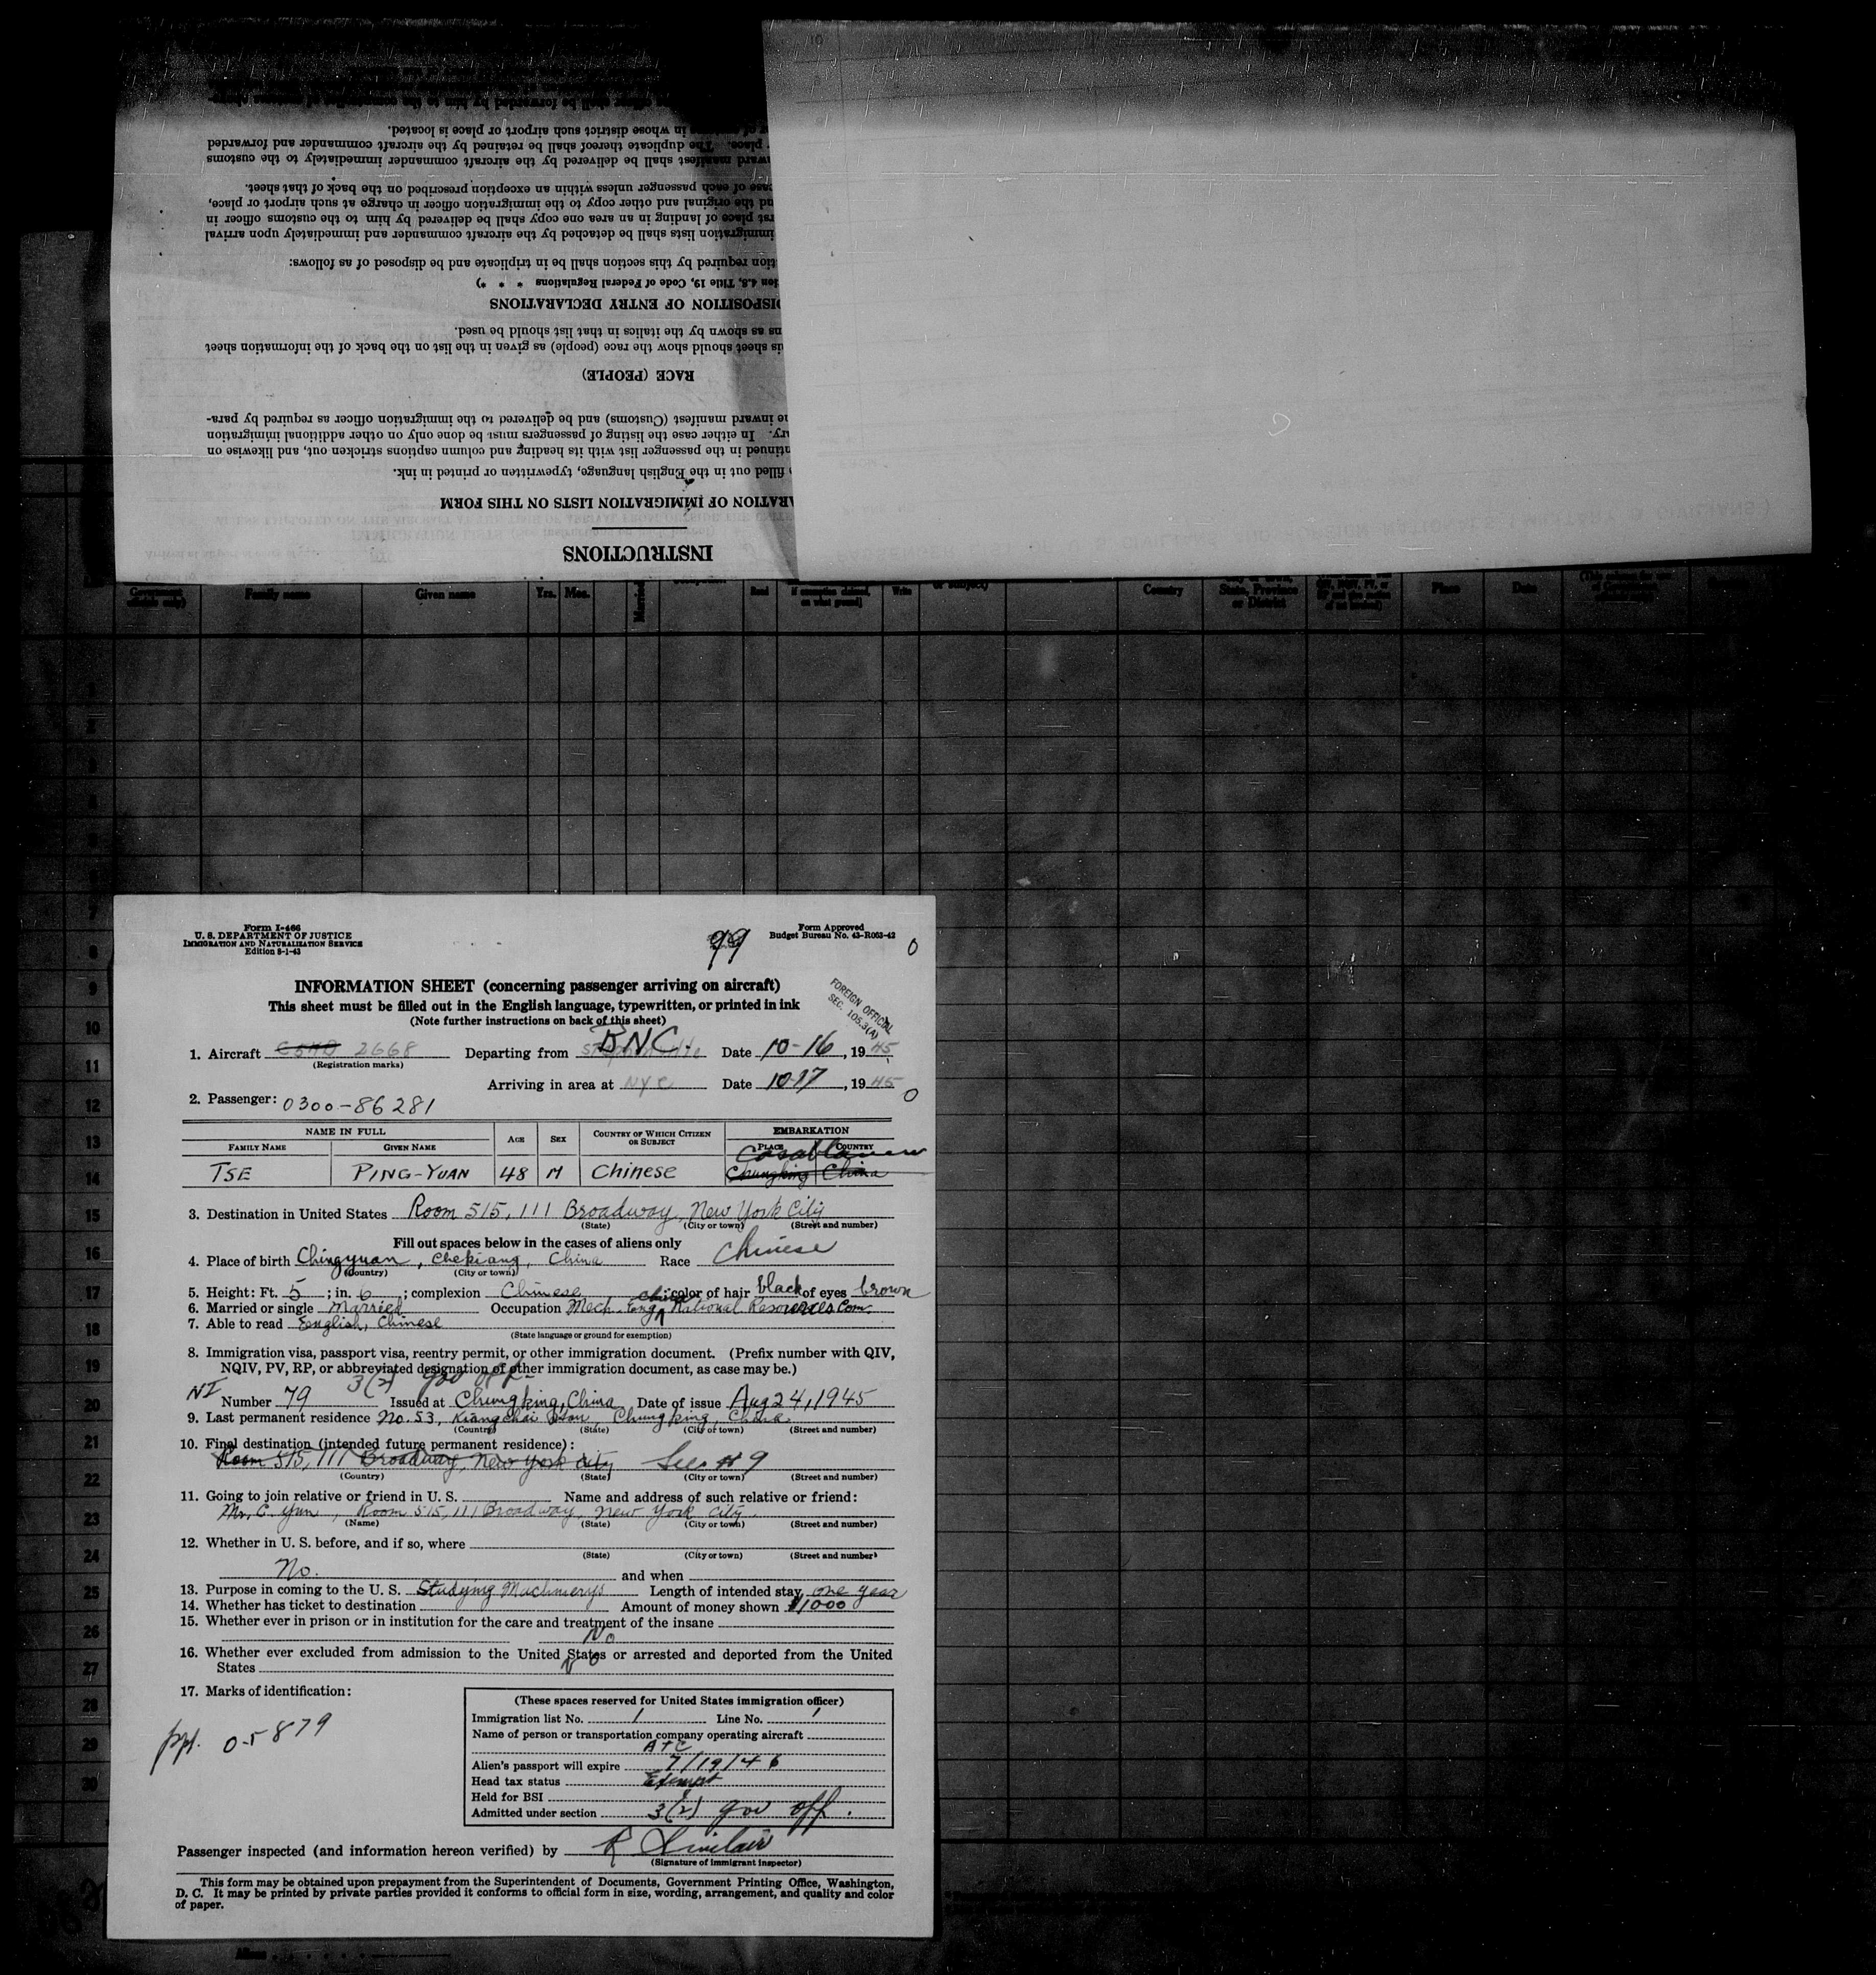 INSTRUCTIONS
PARATION OF IMMIGRATION LISTS ON THIS FORM
filled out in the English language, typewritten or printed in ink.
in the passenger list with its heading and column captions stricken out, and likewise on
In either case the listing of passengers must be done only on other additional immigration
inward manifest (Customs) and be delivered to the immigration officer as required by para-
RACE (PEOPLE)
sheet should show the race (people) as given in the list on the back of the information sheet
as shown by the italics in that list should be used.
DISPOSITION OF ENTRY DECLARATIONS
4.8, Title 19, Code of Federal Regulations * * *)
required by this section shall be in triplicate and be disposed of as follows:
immigration lists shall be detached by the aircraft commander and immediately upon arrival
place of landing in an area one copy shall be delivered by him to the customs officer in
the original and other copy to the immigration officer in charge at such airport or place,
of each passenger unless within an exception prescribed on the back of that sheet.
manifest shall be delivered by the aircraft commander immediately to the customs
place. The duplicate thereof shall be retained by the aircraft commander and forwarded
in whose district such airport or place is located.
shall be forwarded by him to the
Family name Given name Yrs. Mos. Married Read Write Country State, Province or District Place Date
Form I-466
U. S. DEPARTMENT OF JUSTICE
IMMIGRATION AND NATURALIZATION SERVICE
Edition 8-1-43
99
Form Approved
Budget Bureau No. 43-R063-42
INFORMATION SHEET (concerning passenger arriving on aircraft)
This sheet must be filled out in the English language, typewritten, or printed in ink
(Note further instructions on back of this sheet)
FOREIGN OFFICIAL
SEC. 105.3(A)
1. Aircraft 2668 Departing from BNC. Date 10-16, 1945
(Registration marks)
Arriving in area at NYC Date 10-17, 1945
2. Passenger: 0300-86281
NAME IN FULL AGE SEX COUNTRY OF WHICH CITIZEN OR SUBJECT EMBARKATION
FAMILY NAME GIVEN NAME PLACE COUNTRY
Casablanca
TSE PING-YUAN 48 M Chinese Chungking China
3. Destination in United States Room 515, 111 Broadway, New York City
(State) (City or town) (Street and number)
Fill out spaces below in the cases of aliens only
4. Place of birth Chingyuan, Chekiang, China Race Chinese
(Country) (City or town)
5. Height: Ft. 5; in. 6; complexion Chinese; color of hair black of eyes brown
6. Married or single Married Occupation Mech. Eng. China National Resources Com.
7. Able to read English, Chinese
(State language or ground for exemption)
8. Immigration visa, passport visa, reentry permit, or other immigration document. (Prefix number with QIV,
NQIV, PV, RP, or abbreviated designation of other immigration document, as case may be.)
3(2) gov off-
NI Number 79 Issued at Chungking, China Date of issue Aug 24, 1945
9. Last permanent residence No. 53, Kiangchai Chungking, China
(Country) (State) (City or town) (Street and number)
10. Final destination (intended future permanent residence):
Room 515, 111 Broadway, New York City See #9
(Country) (State) (City or town) (Street and number)
11. Going to join relative or friend in U. S. Name and address of such relative or friend:
Mr. C. Yun, Room 515, 111 Broadway, New York City.
(Name) (State) (City or town) (Street and number)
12. Whether in U. S. before, and if so, where
(State) (City or town) (Street and number)
No. and when
13. Purpose in coming to the U. S. Studying Machinerys Length of intended stay one year
14. Whether has ticket to destination Amount of money shown $1000
15. Whether ever in prison or in institution for the care and treatment of the insane
No
16. Whether ever excluded from admission to the United States or arrested and deported from the United
States No
17. Marks of identification:
ppt. 0-5879
(These spaces reserved for United States immigration officer)
Immigration list No. 1 Line No. 1
Name of person or transportation company operating aircraft
ATC
Alien's passport will expire 7/19/46
Head tax status Exempt
Held for BSI
Admitted under section 3(2) gov off.
Passenger inspected (and information hereon verified) by R Sinclair
(Signature of immigrant inspector)
This form may be obtained upon prepayment from the Superintendent of Documents, Government Printing Office, Washington,
D. C. It may be printed by private parties provided it conforms to official form in size, wording, arrangement, and quality and color
of paper.